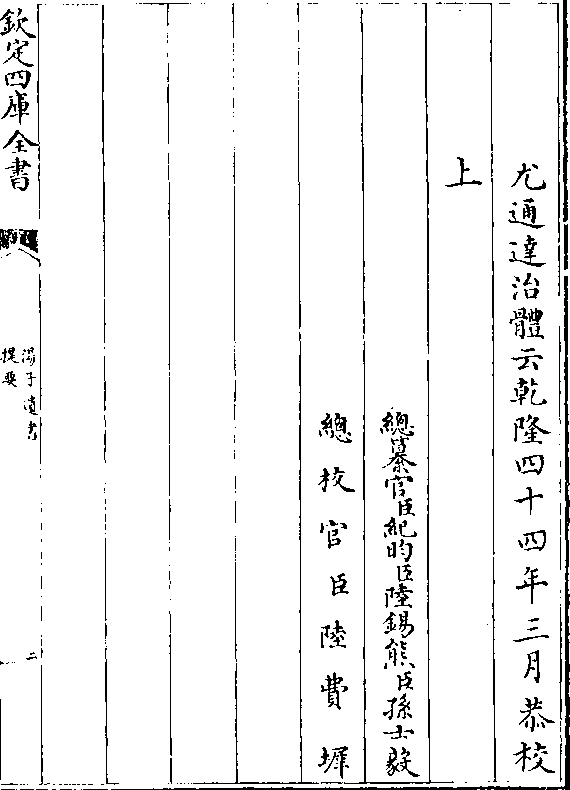 尤通達治體云乾隆四十四年三月恭校
上
總纂官臣紀昀臣陸錫熊臣孫士毅
總校官臣陸費墀
欽定四庫全書
湯子遺書
提要
二